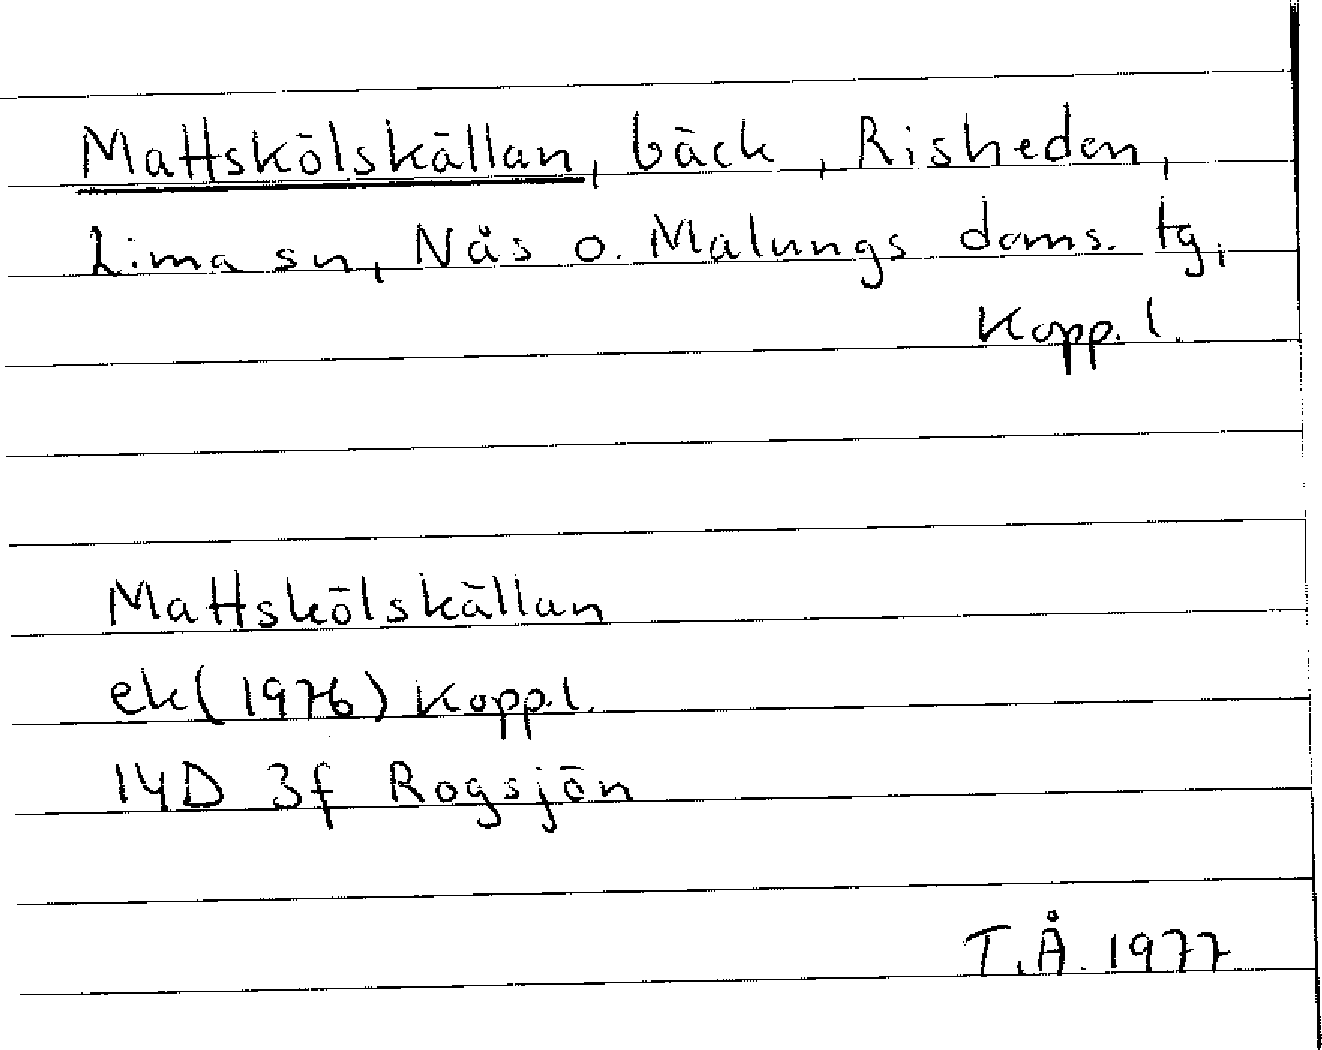 Mattskölskällan, bäck, Risheden,
Lima sn, Nås o. Malungs doms. tg,
Kopp. l.
Mattskölskällan
ek (1976) Kopp. l.
14D 3f Rogsjön
T.Å. 1977